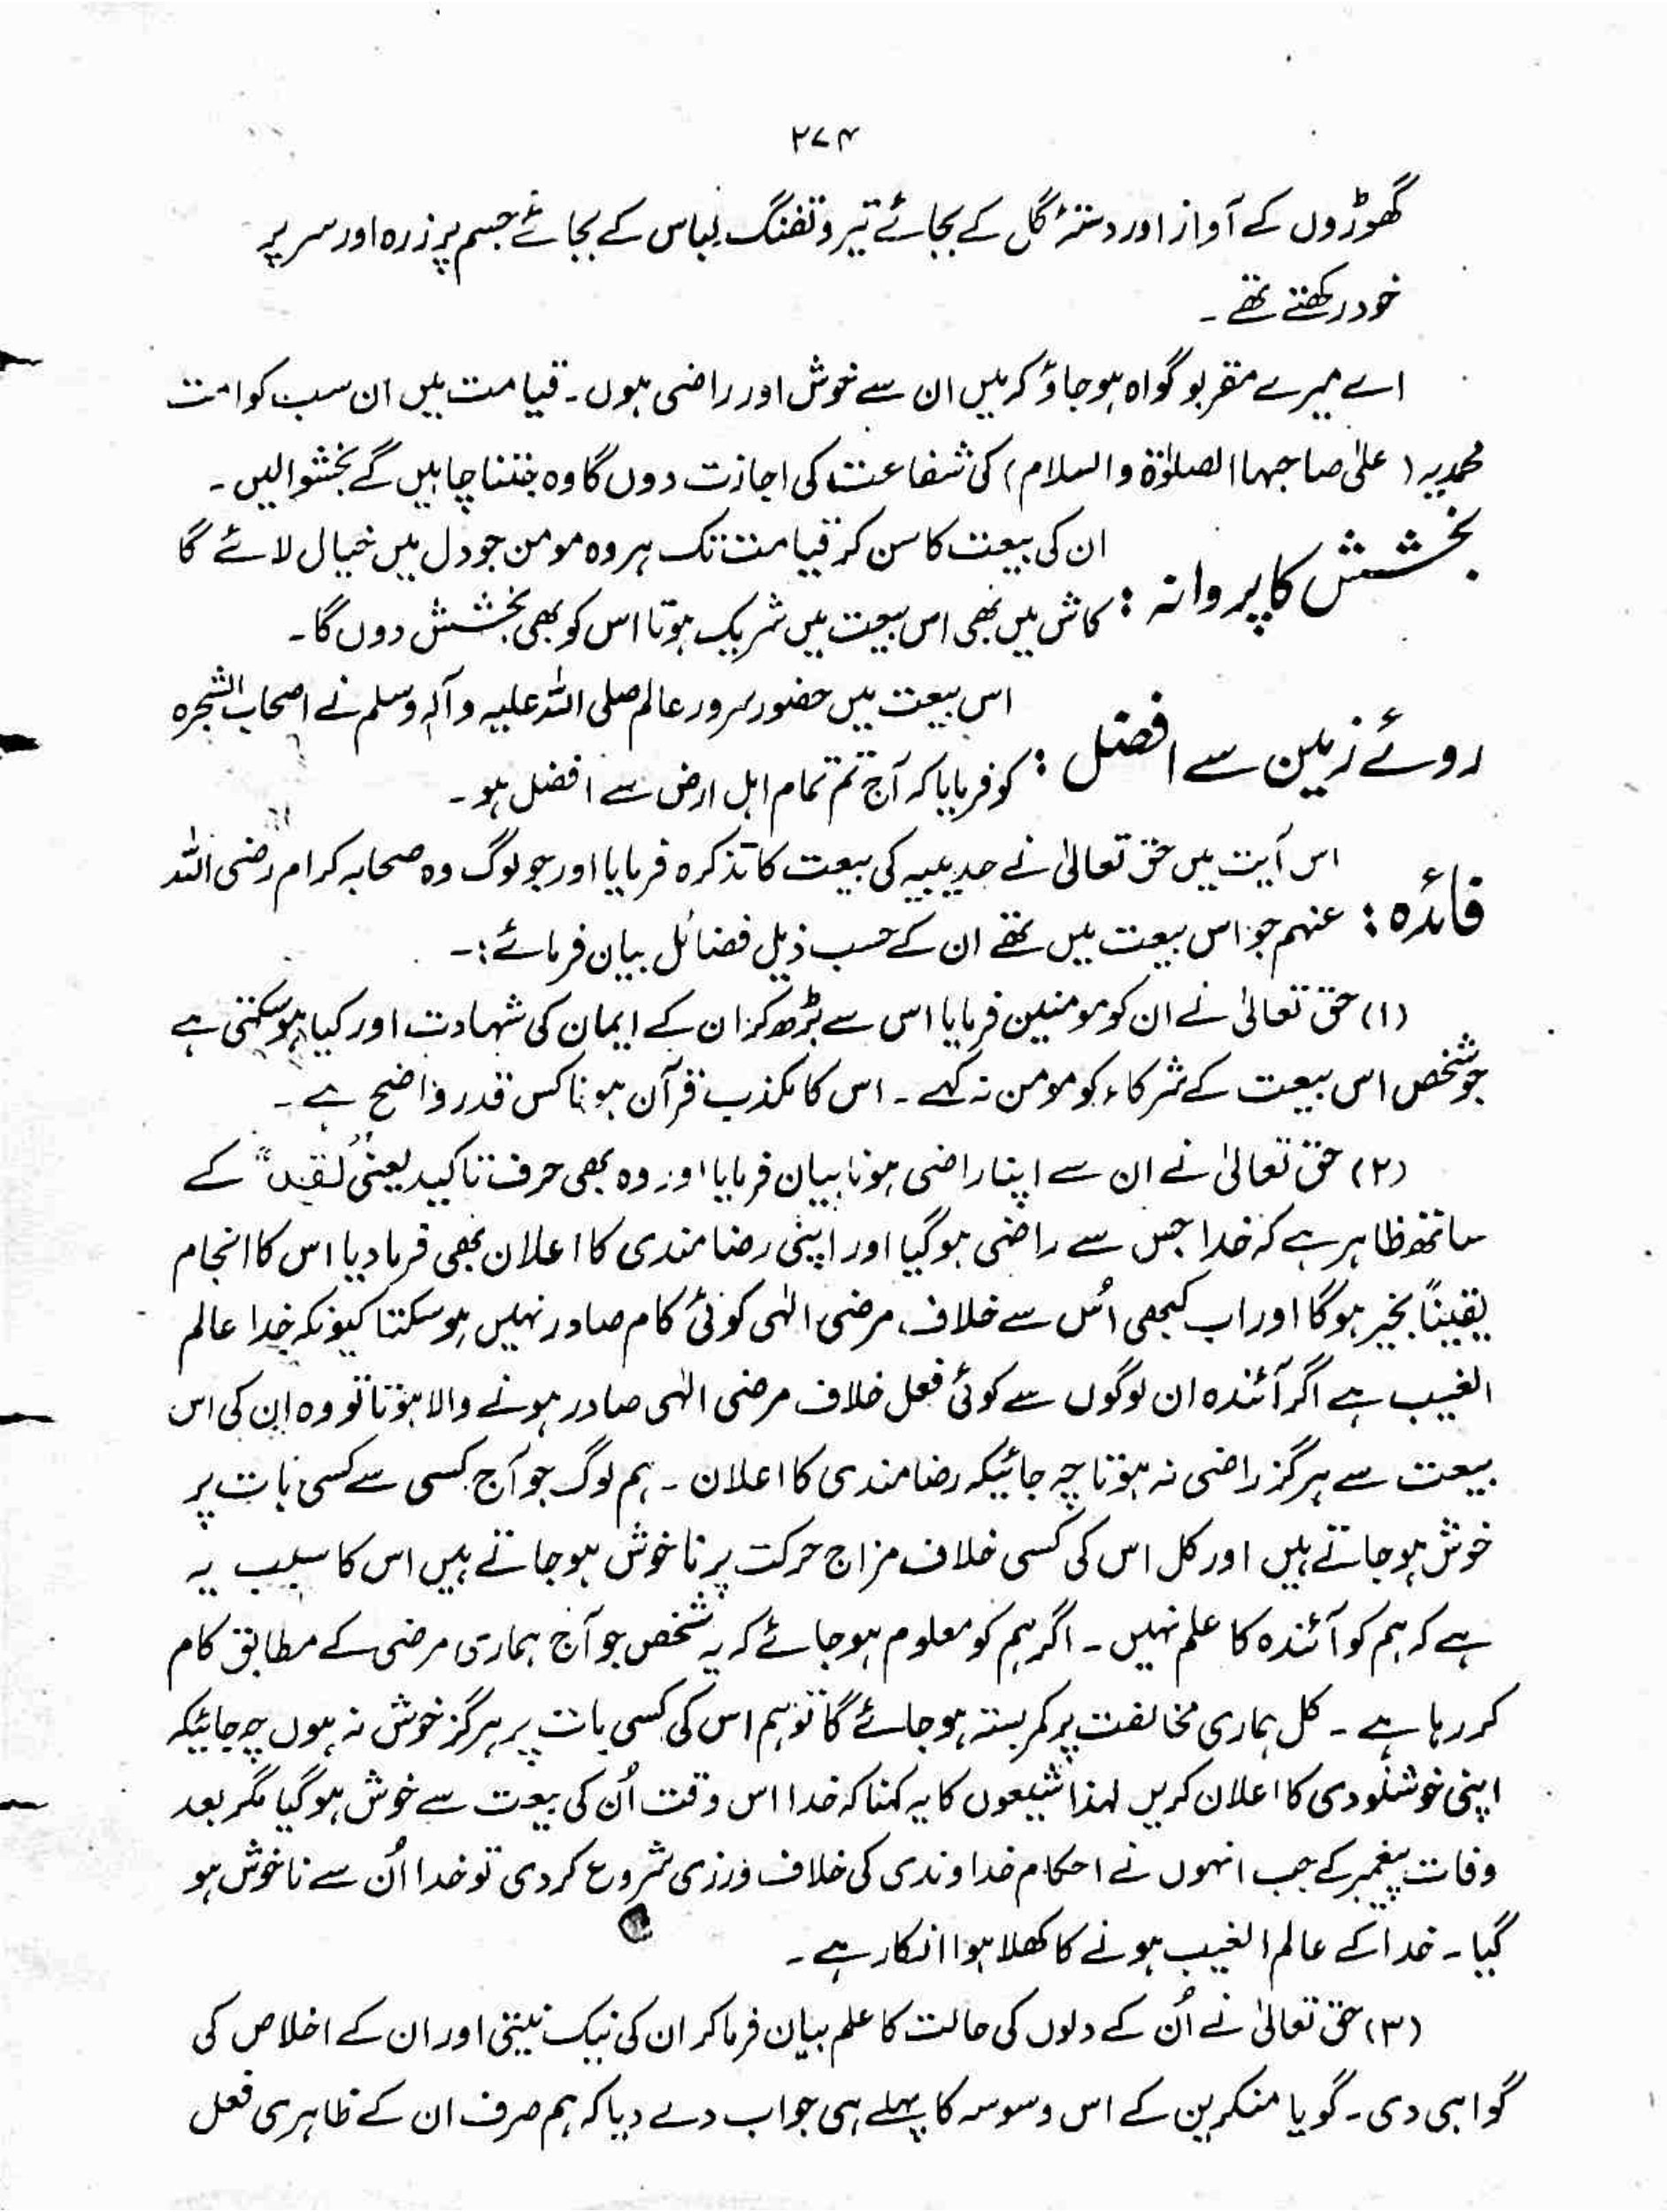 ۲۷۴
گھوڑوں کے آواز اور دستۂ گل کے بجائے تیر و تفنگ لباس کے بجائے جسم پر زرہ اور سر پر
خود رکھتے تھے ۔
اے میرے مقربو گواہ ہو جاؤ کہ میں ان سے خوش اور راضی ہوں ۔ قیامت میں ان سب کو امت
محمدیہ (علیٰ صاحبہا الصلوٰۃ والسلام) کی شفاعت کی اجازت دوں گا وہ جتنا چاہیں گے بخشوالیں ۔
بخشش کا پروانہ : ان کی بیعت کا سن کر قیامت تک ہر وہ مومن جو دل میں خیال لائے گا
کاش میں بھی اس بیعت میں شریک ہوتا اس کو بھی بخشش دوں گا ۔
روئے زمین سے افضل : اس بیعت میں حضور سرور عالم صلی اللہ علیہ وآلہ وسلم نے اصحاب الشجرہ
کو فرمایا کہ آج تم تمام اہل ارض سے افضل ہو ۔
فائدہ : اس آیت میں حق تعالیٰ نے حدیبیہ کی بیعت کا تذکرہ فرمایا اور جو لوگ وہ صحابہ کرام رضی اللہ
عنہم جو اس بیعت میں تھے ان کے حسب ذیل فضائل بیان فرمائے :۔
(۱) حق تعالیٰ نے ان کو مومنین فرمایا اس سے بڑھ کر ان کے ایمان کی شہادت اور کیا ہو سکتی ہے
جو شخص اس بیعت کے شرکاء کو مومن نہ کہے ۔ اس کا مکذب قرآن ہونا کس قدر واضح ہے ۔
(۲) حق تعالیٰ نے ان سے اپنا راضی ہونا بیان فرمایا اور وہ بھی حرف تاکید یعنی "لقد" کے
ساتھ ظاہر ہے کہ خدا جس سے راضی ہو گیا اور اپنی رضا مندی کا اعلان بھی فرما دیا اس کا انجام
یقیناً بخیر ہوگا اور اب کبھی اُس سے خلاف مرضی الٰہی کوئی کام صادر نہیں ہو سکتا کیونکہ خدا عالم
الغیب ہے اگر آئندہ ان لوگوں سے کوئی فعل خلاف مرضی الٰہی صادر ہونے والا ہوتا تو وہ ان کی اس
بیعت سے ہرگز راضی نہ ہوتا چہ جائیکہ رضا مندی کا اعلان ۔ ہم لوگ جو آج کسی سے کسی بات پر
خوش ہو جاتے ہیں اور کل اس کی کسی خلاف مزاج حرکت پر ناخوش ہو جاتے ہیں اس کا سبب یہ
ہے کہ ہم کو آئندہ کا علم نہیں ۔ اگر ہم کو معلوم ہو جائے کہ یہ شخص جو آج ہماری مرضی کے مطابق کام
کر رہا ہے ۔ کل ہماری مخالفت پر کمر بستہ ہو جائے گا تو ہم اس کی کسی بات پر ہرگز خوش نہ ہوں چہ جائیکہ
اپنی خوشنودی کا اعلان کریں لہذا شیعوں کا یہ کہنا کہ خدا اس وقت اُن کی بیعت سے خوش ہو گیا مگر بعد
وفات پیغمبر کے جب انہوں نے احکام خداوندی کی خلاف ورزی شروع کردی تو خدا اُن سے ناخوش ہو
گیا ۔ خدا کے عالم الغیب ہونے کا کھلا ہوا انکار ہے ۔
(۳) حق تعالیٰ نے اُن کے دلوں کی حالت کا علم بیان فرما کر ان کی نیک نیتی اور ان کے اخلاص کی
گواہی دی ۔ گویا منکرین کے اس وسوسہ کا پہلے ہی جواب دے دیا کہ ہم صرف ان کے ظاہری فعل